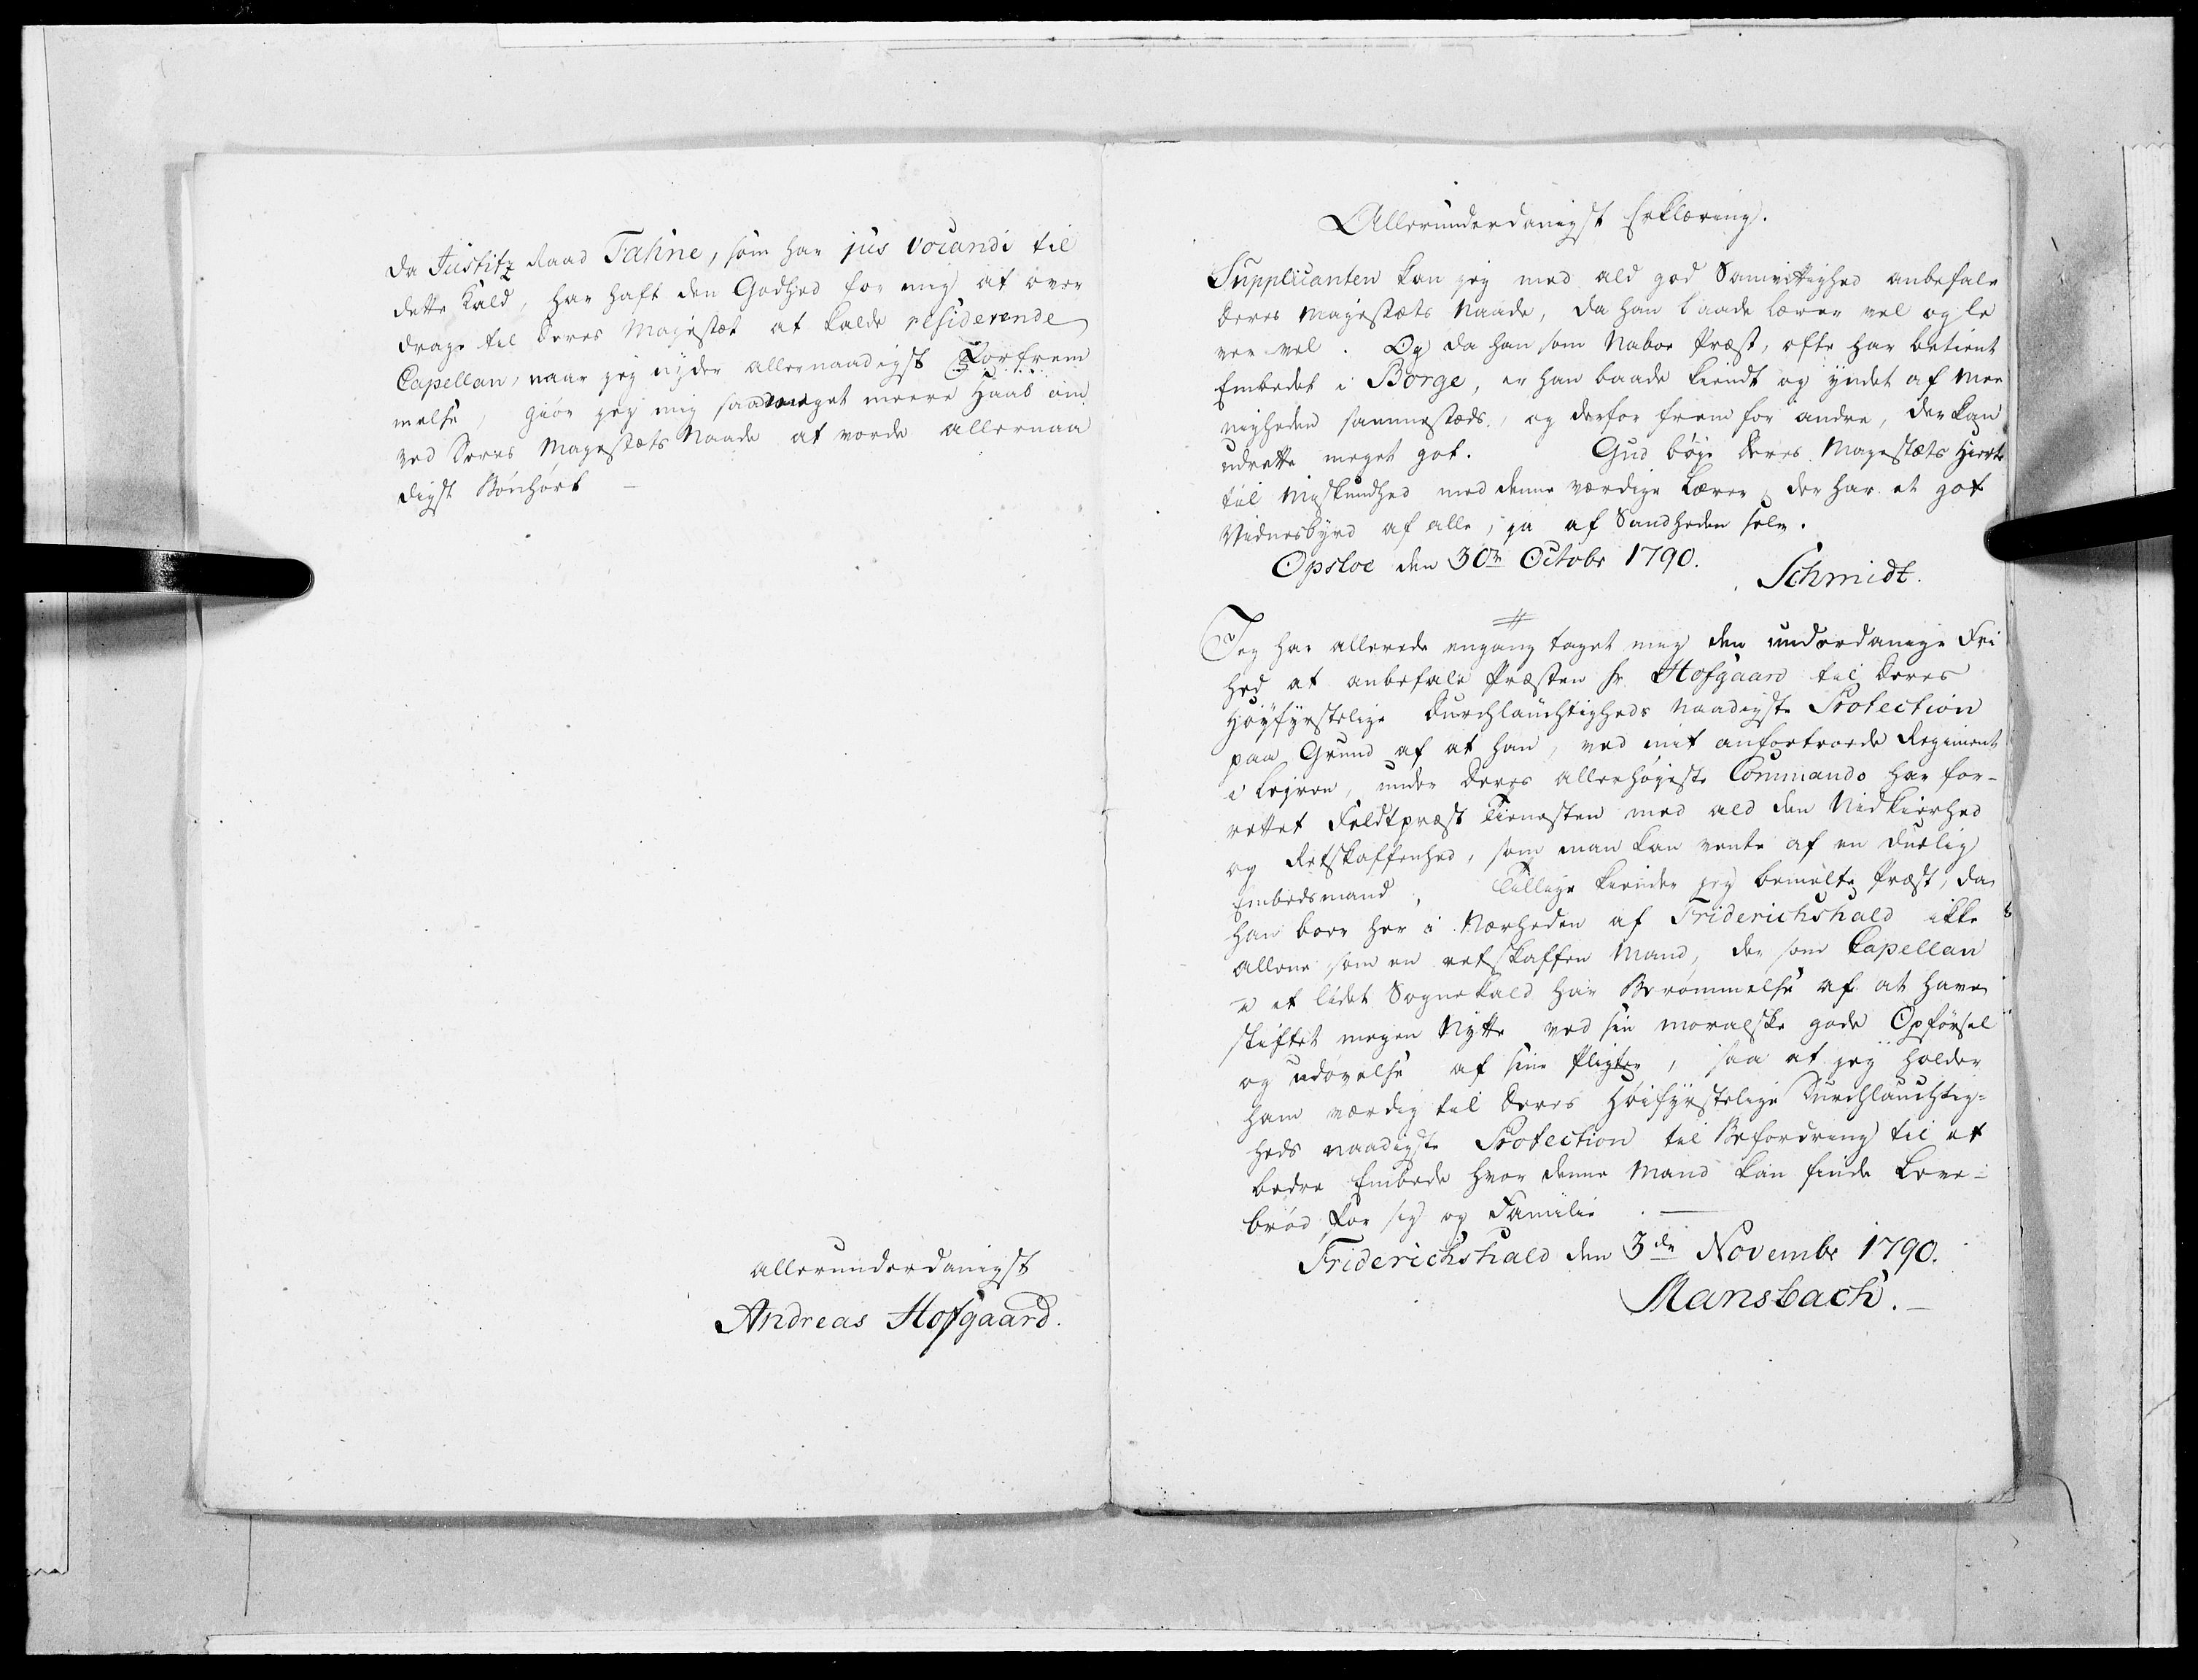 da Justitz Raad Tahne, som har jus vocandi til
dette Kald, har haft den Godhed for mig at over
drage til Deres Majestæt at kalde residerende
Capellan, naar jeg nyder allernaadigst Forfrem
melse, giør jeg mig saameget meere Haab om
ved Deres Magestæts Naade at vorde allernaa
digst Bønhørt
allerunderdanigst
Andreas Hofgaard.
Allerunderdanigst Erklæring.
Supplicanten kan jeg med ald god Samvittighed anbefale
Deres Magestæts Naade, da han baade lærer vel og le
ver vel. Og da han som Naboe Præst, ofte har betient
Embedet i Borge, er han baade kiendt og yndet af Me
nigheden sammestæds, og derfor frem for andre, der kan
udrette meget got. Gud bøye Deres Magestæts Hierte
til Miskundhed med denne værdige Lærer, der har et got
Vidnesbyrd af alle, ja af Sandheden selv.
Opsloe den 30te Octobr 1790.
Schmidt.
Jeg har allerede engang taget mig den underdanige Fri
hed at anbefale Præsten hr. Hofgaard til Deres
Høyfyrstelige Durchlauchtigheds Naadigste Protection
paa Grund af at han, ved mit anfortroede Regiment
i Lejren, under Deres allerhøyeste Commando har for-
rettet Feldtpræst Tienesten med ald den Nidkierhed
og Retskaffenhed, som man kan vente af en duelig
Embedsmand, Tillige kiender jeg bemelte Præst, da
han boer her i Nærheden af Friderichshald ikke
allene som en retskaffen Mand, der som Capellan
i et lidet Sognekald har Berømmelse af at have
stiftet megen Nytte ved sin moralske gode Opførsel
og udøvelse af sine Pligter, saa at jeg holder
ham værdig til Deres Høifyrstelige Durchlauchtig-
heds naadigste Protection til Befordring til et
bedre Embede hvor denne Mand kan finde Leve-
brød for sig og Familie.
Friderichshald den 3de Novembr 1790.
Mansbach.